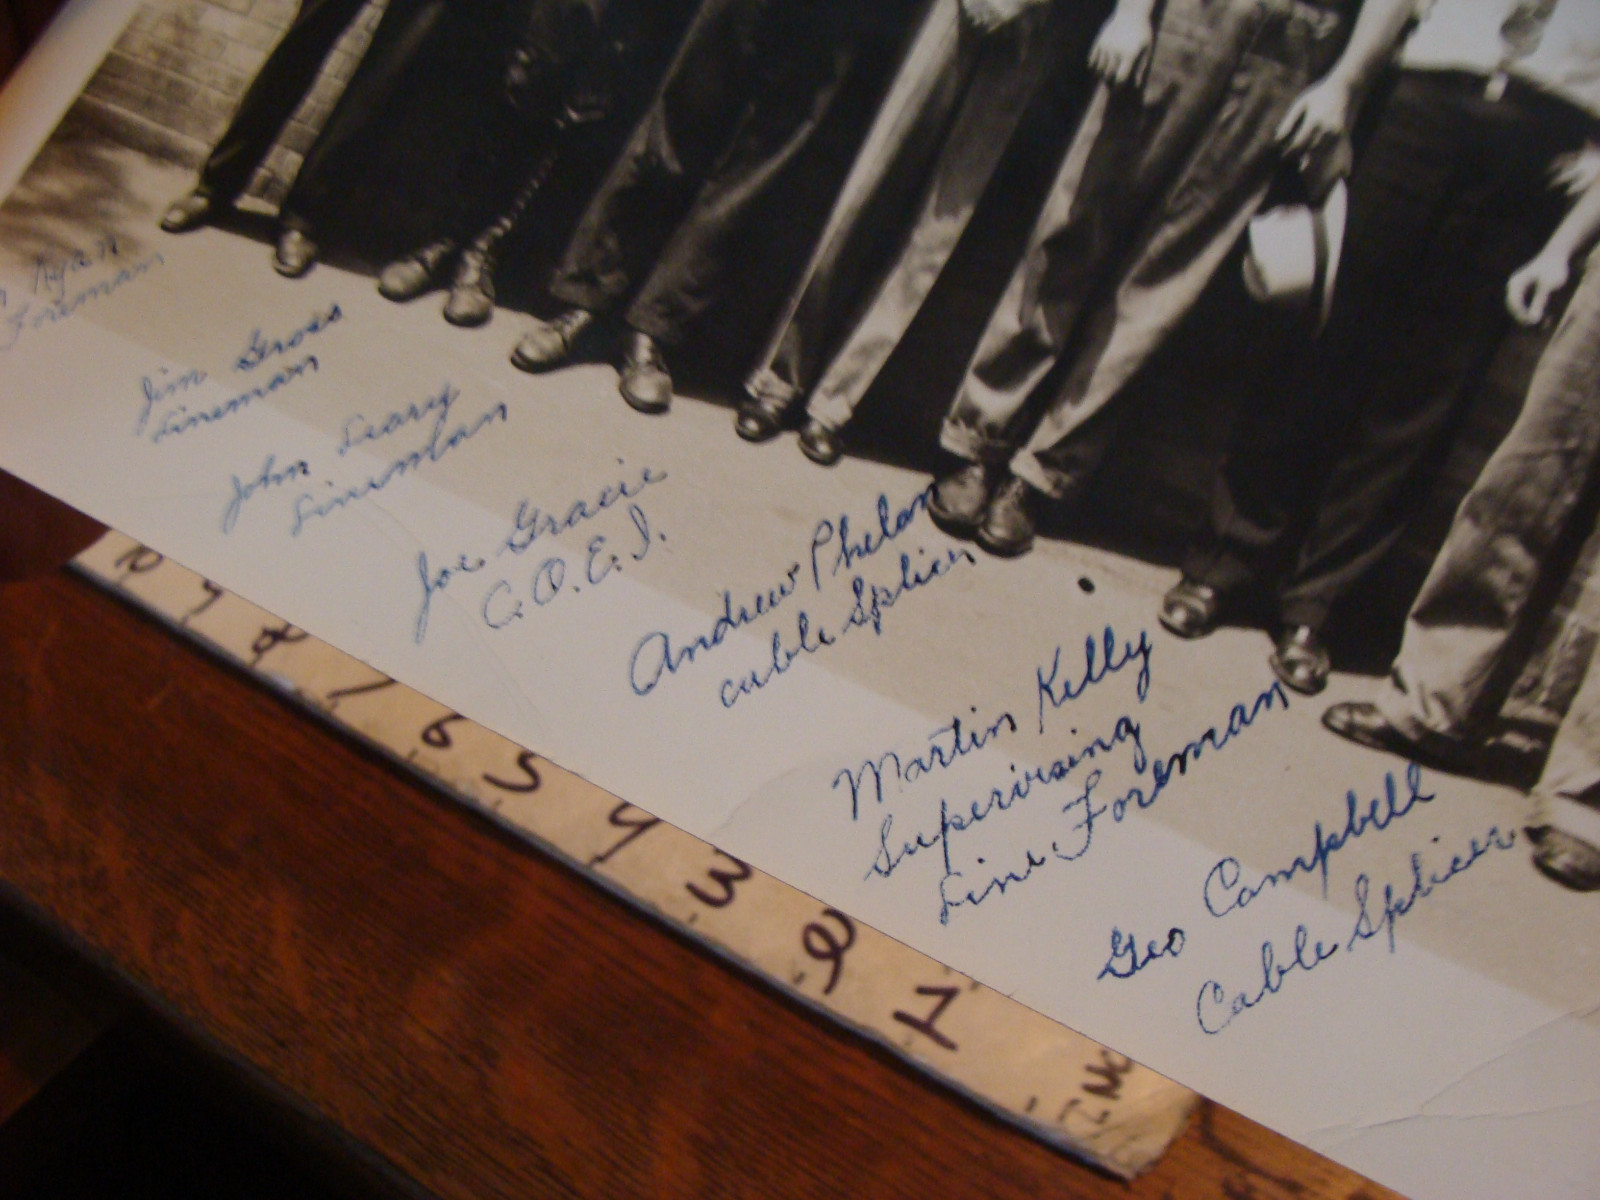 Ryan
Foreman
Jim Gross
Lineman
John Leary
Lineman
Joe Gracie
C.O.E.I.
Andrew Phelan
cable Splicer
Martin Kelly
Supervising
Line Foreman
Geo Campbell
Cable Splicer
9 8 7 6 5 4 3 2 1